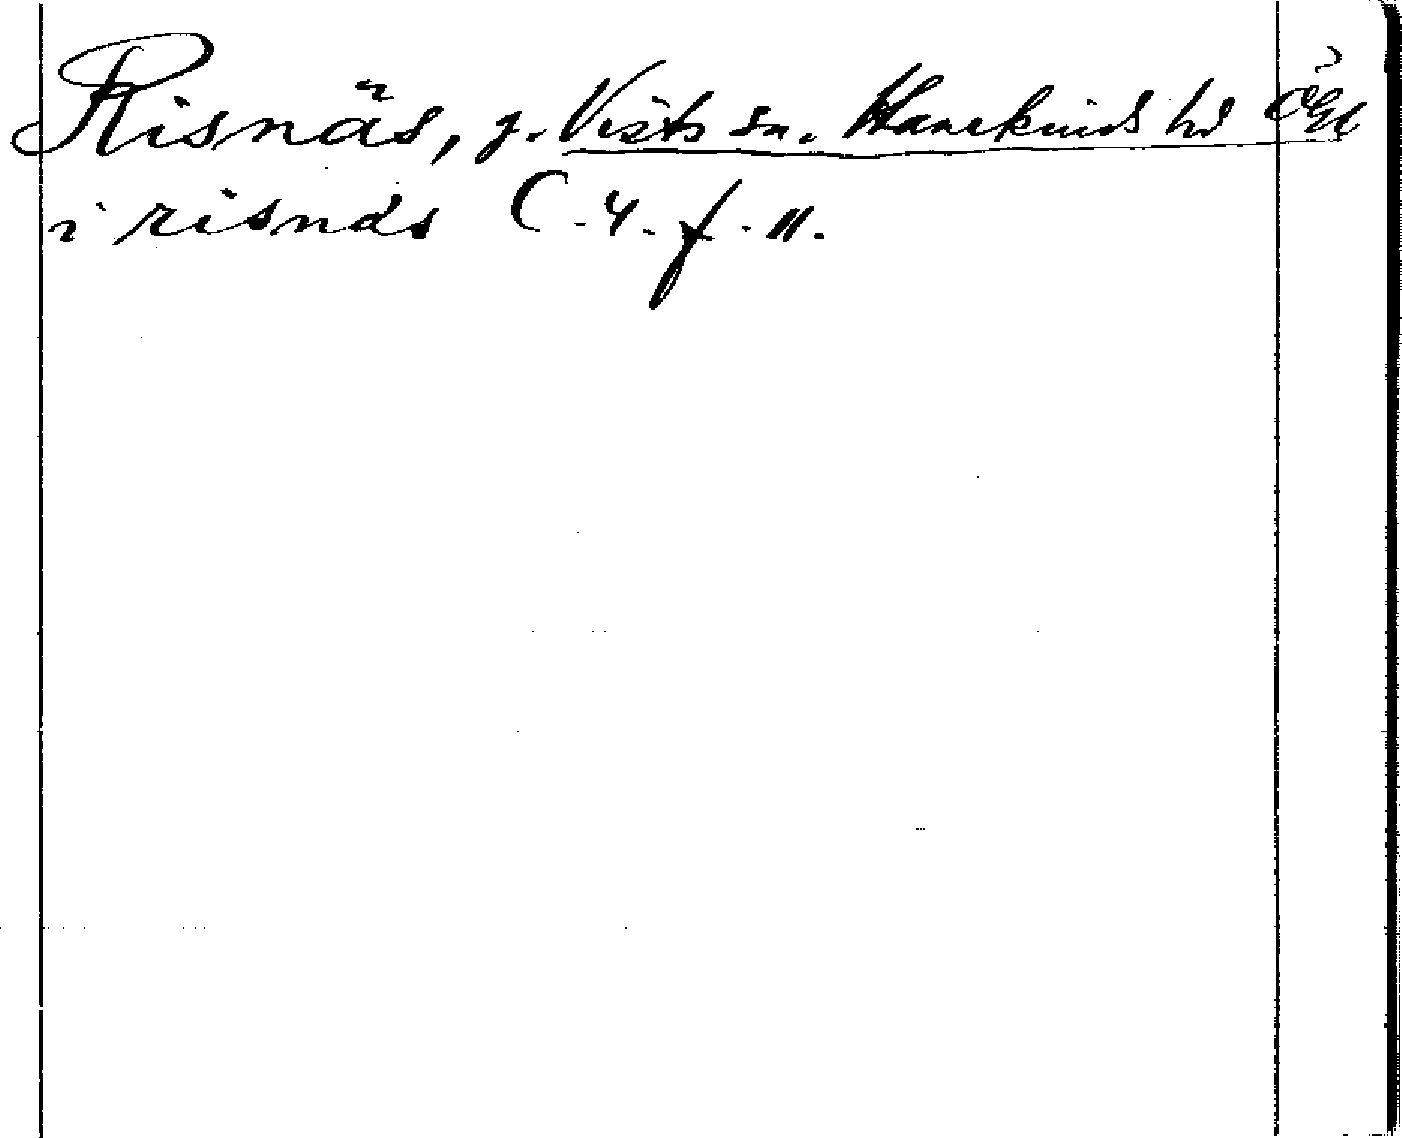 Risnäs, g. Vists sn. Hanekinds hd Ögl
i risnäs C. 4. f. 11.